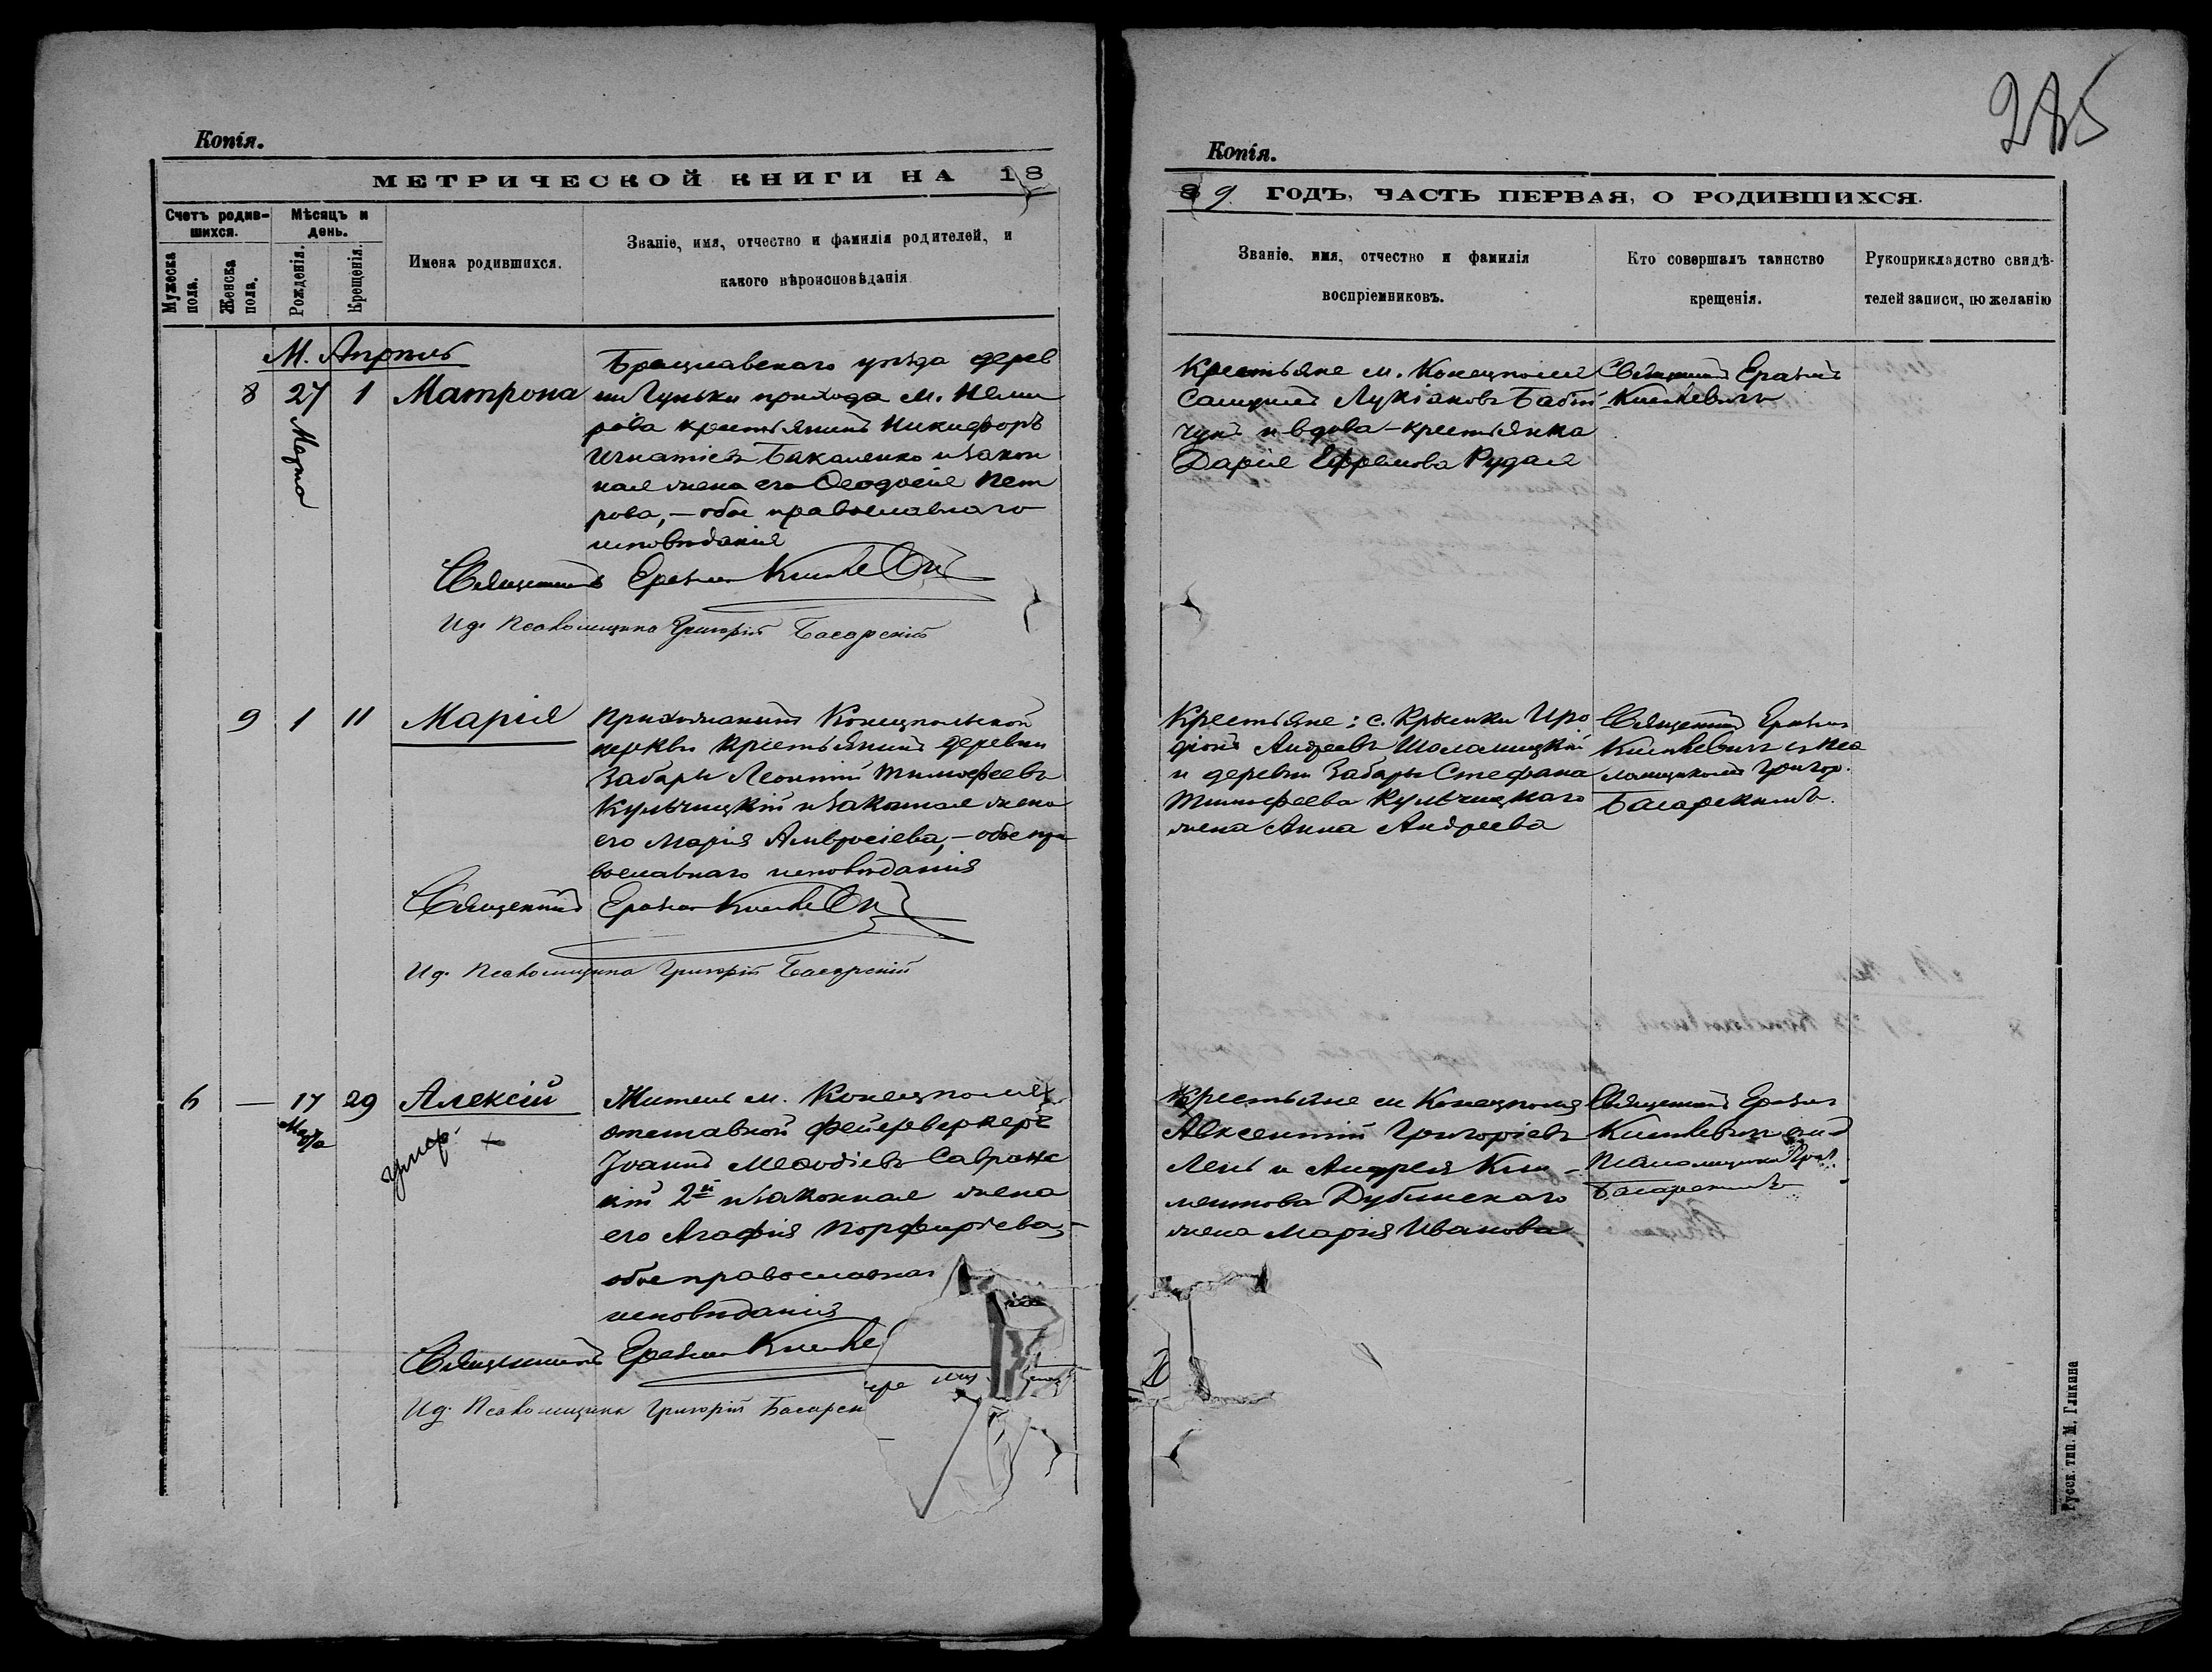 Копія.
МЕТРИЧЕСКОЙ КНИГИ НА 18
Счетъ родив-
шихся.
Мѣсяцъ и
день.
Мужеска
пола.
Женска
пола.
Рожденія.
Крещенія.
Имена родившихся.
Званіе, имя, отчество и фамилія родителей, и
какого вѣроисповѣданія
М. Апрель
8 27 1 Матрона
Марта
Брацлавскаго уѣзда дерев
ни Гуньки прихода м. Неми
рова крестьянинъ Никифоръ
Игнатіевъ Бакаленко и закон
ная жена его Ѳеодосія Пет
рова, – обое православнаго
исповѣданія
Священникъ Еразмъ
Ид. Псаломщика Григорій Басарскій
9 1 11 Марія
Прихожанинъ Конецпольской
церкви крестьянинъ деревни
Забары Леонтій Тимофеевъ
Кульчицкій и законная жена
его Марія Амвросіева, – обое пра
вославнаго исповѣданія
Священникъ Еразмъ
Ид. Псаломщика Григорій Басарскій
6 — 17 29 Алексій
Марта
умер. +
Житель м. Конецполя
отставной фейерверкеръ
Іоаннъ Меѳодіевъ Савранс
кій 2й и законная жена
его Агафія Порфиріева, –
обое православнаг
исповѣданія
Священникъ Еразмъ
Ид. Псаломщика Григорій Басарск
285
Копія.
89 ГОДЪ, ЧАСТЬ ПЕРВАЯ, О РОДИВШИХСЯ.
Званіе, имя, отчество и фамилія
воспріемниковъ.
Кто совершалъ таинство
крещенія.
Рукоприкладство свидѣ-
телей записи, по желанію
Крестьяне м. Конецполя
Самуилъ Лукіановъ Бабій
чукъ и вдова – крестьянка
Дарія Ефремова Рудая
Священникъ Еразмъ
Крестьяне: с. Крымки Иро
діонъ Андреевъ Шаламицкій
и деревни Забары Стефана
Тимофеева Кульчицкаго
жена Анна Андреева
Священникъ Еразмъ
с Пса
ломщикомъ Григор.
Басарскимъ.
Крестьяне м Конецполя
Авксентій Григоріевъ
Лень и Андрея Кли-
ментова Дубинскаго
жена Марія Иванова
Священникъ Еразмъ
Басарскимъ
Русск. тип. М. Гликина